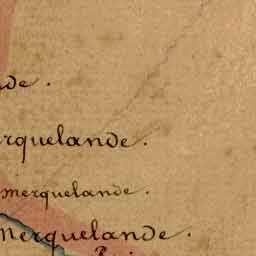 de.
rquelande.
merquelande.
merquelande.